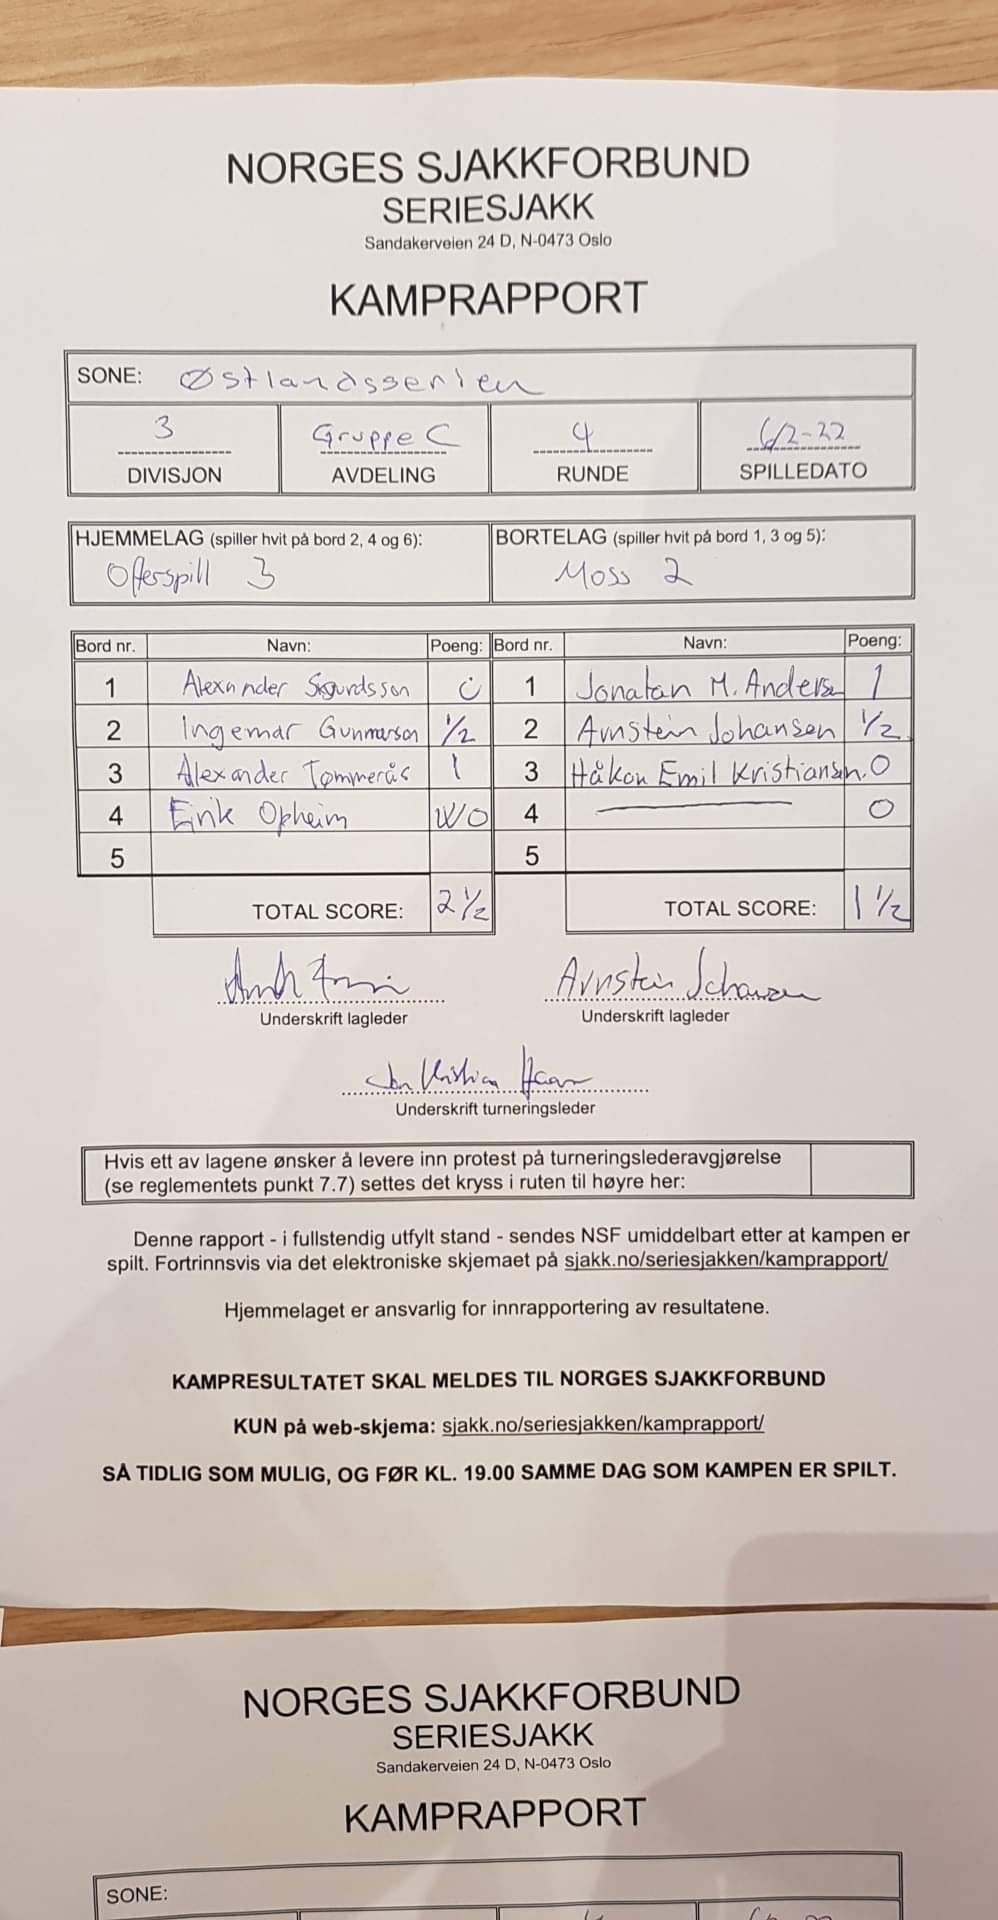 NORGES SJAKKFORBUND
SERIESJAKK
Sandakerveien 24 D, N-0473 Oslo
KAMPRAPPORT
SONE: Østlandsserien
3 Gruppe C 4 6/2-22
DIVISJON AVDELING RUNDE SPILLEDATO
HJEMMELAG (spiller hvit på bord 2, 4 og 6): BORTELAG (spiller hvit på bord 1, 3 og 5):
Offerspill 3 Moss 2
Bord nr. Navn: Poeng: Bord nr. Navn: Poeng:
1 Alexander Sigurdsson 0 1 Jonatan M. Anderse 1
2 Ingemar Gunnarson 1/2 2 Arnstein Johansen 1/2
3 Alexander Tømmerås 1 3 Håkon Emil Kristiansen. 0
4 Eirik Opheim WO 4 0
5 5
TOTAL SCORE: 2 1/2 TOTAL SCORE: 1 1/2
Arnstein Johansen
Underskrift lagleder Underskrift lagleder
Jon Kristian Haar
Underskrift turneringsleder
Hvis ett av lagene ønsker å levere inn protest på turneringslederavgjørelse
(se reglementets punkt 7.7) settes det kryss i ruten til høyre her:
Denne rapport - i fullstendig utfylt stand - sendes NSF umiddelbart etter at kampen er
spilt. Fortrinnsvis via det elektroniske skjemaet på sjakk.no/seriesjakken/kamprapport/
Hjemmelaget er ansvarlig for innrapportering av resultatene.
KAMPRESULTATET SKAL MELDES TIL NORGES SJAKKFORBUND
KUN på web-skjema: sjakk.no/seriesjakken/kamprapport/
SÅ TIDLIG SOM MULIG, OG FØR KL. 19.00 SAMME DAG SOM KAMPEN ER SPILT.
NORGES SJAKKFORBUND
SERIESJAKK
Sandakerveien 24 D, N-0473 Oslo
KAMPRAPPORT
SONE: